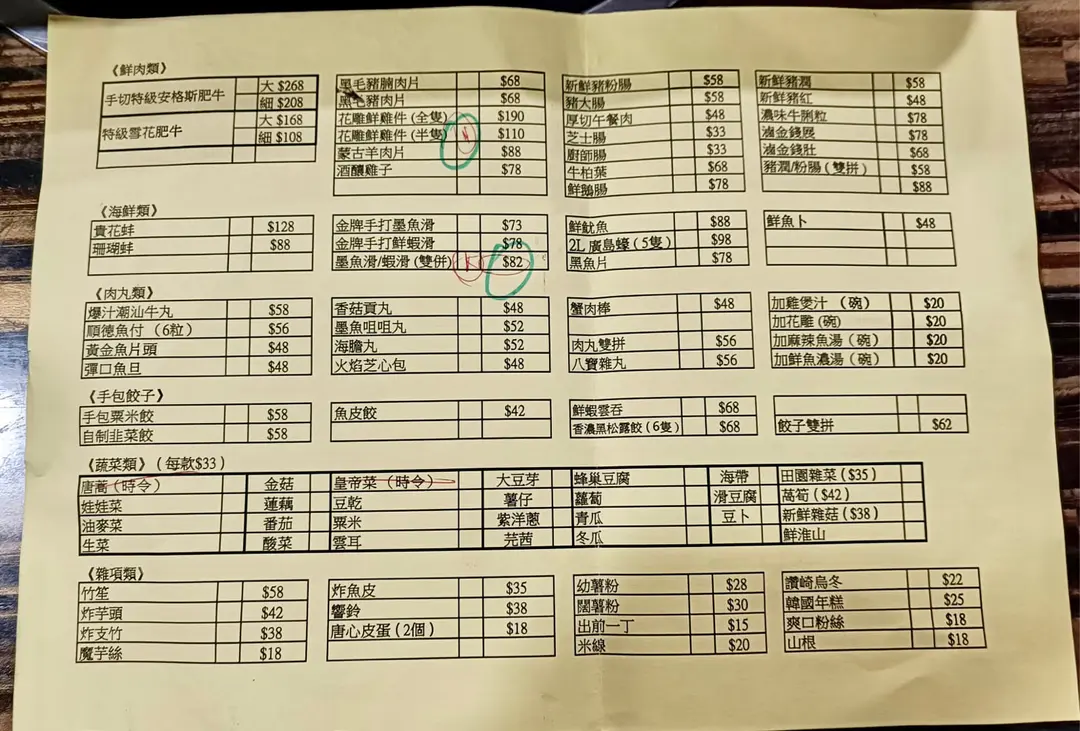 《鮮肉類》
手切特級安格斯肥牛 大 $268
細 $208
特級雪花肥牛 大 $168
細 $108
黑毛豬腩肉片 $68
黑毛豬肉片 $68
花雕鮮雞件 (全隻) $190
花雕鮮雞件 (半隻) $110
蒙古羊肉片 $88
酒釀雞子 $78
新鮮豬粉腸 $58
豬大腸 $58
厚切午餐肉 $48
芝士腸 $33
廚師腸 $33
牛柏葉 $68
鮮鵝腸 $78
新鮮豬潤 $58
新鮮豬紅 $48
濃味牛脷粒 $78
滷金錢𦟌 $78
滷金錢肚 $68
豬潤/粉腸 (雙拼) $58
$88
《海鮮類》
貴花蚌 $128
珊瑚蚌 $88
金牌手打墨魚滑 $73
金牌手打鮮蝦滑 $78
墨魚滑/蝦滑 (雙併) $82
鮮魷魚 $88
2L 廣島蠔 (5隻) $98
黑魚片 $78
鮮魚卜 $48
《肉丸類》
爆汁潮汕牛丸 $58
順德魚付 (6粒) $56
黃金魚片頭 $48
彈口魚旦 $48
香菇貢丸 $48
墨魚咀咀丸 $52
海膽丸 $52
火焰芝心包 $48
蟹肉棒 $48
肉丸雙拼 $56
八寶雜丸 $56
加雞煲汁 (碗) $20
加花雕 (碗) $20
加麻辣魚湯 (碗) $20
加鮮魚濃湯 (碗) $20
《手包餃子》
手包粟米餃 $58
自制韭菜餃 $58
魚皮餃 $42
鮮蝦雲吞 $68
香濃黑松露餃 (6隻) $68
餃子雙拼 $62
《蔬菜類》(每款$33)
唐蒿 (時令) 金菇 皇帝菜 (時令) 大豆芽 蜂巢豆腐 海帶 田園雜菜 ($35)
娃娃菜 蓮藕 豆乾 薯仔 蘿蔔 滑豆腐 萵筍 ($42)
油麥菜 番茄 粟米 紫洋蔥 青瓜 豆卜 新鮮雜菇 ($38)
生菜 酸菜 雲耳 芫茜 冬瓜 鮮淮山
《雜項類》
竹笙 $58
炸芋頭 $42
炸支竹 $38
魔芋絲 $18
炸魚皮 $35
響鈴 $38
唐心皮蛋 (2個) $18
幼薯粉 $28
闊薯粉 $30
出前一丁 $15
米線 $20
讚崎烏冬 $22
韓國年糕 $25
爽口粉絲 $18
山根 $18